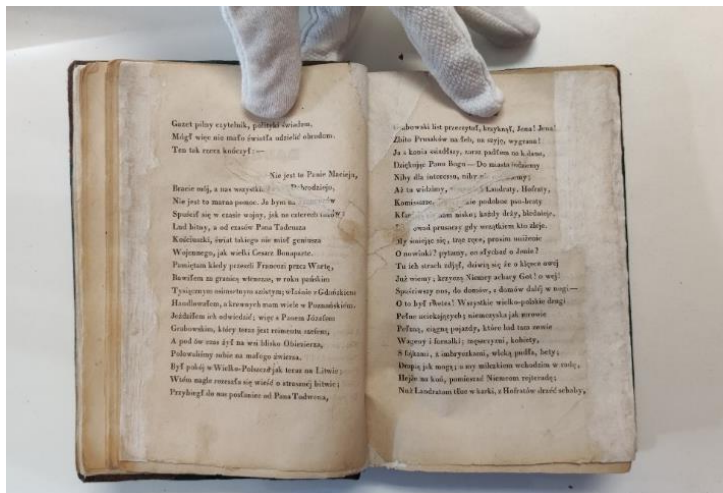 Gazet pilny czytelnik, polityki świadom.
Mógł więc nie mało światła udzielić obradom.
Ten tak rzecz kończył: —
Nie jest to Panie Macieju,
Bracie mój, a nas wszystkich Dobrodzieju,
Nie jest to marna pomoc. Ja bym na
Spuścił się w czasie wojny, jak na czterech tuzów;
Lud bitny, a od czasów Pana Tadeusza
Kościuszki, świat takiego nie miał geniusza
Wojennego, jak wielki Cesarz Bonaparte.
Pamiętam kiedy przeszli Francuzi przez Wartę,
Bawiłem za granicą wtenczas, w roku pańskim
Tysiącznym ośmsetnym szóstym; właśnie z Gdańskiem
Handlowałem, a krewnych mam wiele w Poznańskiém.
Jeździłem ich odwiedzić; więc z Panem Józefem
Grabowskim, który teraz jest rejmentu szefem,
A pod ów czas żył na wsi blisko Obiezierza,
Polowaliśmy sobie na małego zwierza.
Był pokój w Wielko-Polszcze jak teraz na Litwie;
Wtém nagle rozeszła się wieść o strasznej bitwie;
Przybiegł do nas posłaniec od Pana Todwena,
Grabowski list przeczytał, krzyknął, Jena! Jena!
Zbito Prusaków na łeb, na szyję, wygrana!
Ja z konia zsiadłszy, zaraz padłem na kolana,
Dziękując Panu Bogu — Do miasta jedziemy
Niby dla interessu, niby nic
Aż tu widzimy, Landraty, Hofraty,
Komissarze, podobne psie-braty
nam nisko; każdy drży, blednieje,
prusaczy gdy wrzątkiem kto zleje.
My śmiejąc się, trąc ręce, prosim uniżenie
O nowinki? pytamy, co słychać o Jenie?
Tu ich strach zdjął, dziwią się że o klęsce owej
Już wiemy; krzyczą Niemcy achary Got! o wej!
Spuściwszy nos, do domów, z domów daléj w nogi —
O to był rwetes! Wszystkie wielko-polskie drogi
Pełne uciekających; niemczyska jak mrowie
Pełzną, ciągną pojazdy, które lud tam zowie
Wageny i fornalki; mężczyzni, kobiety,
S fajkami, z imbryczkami, wleką pudła, bety;
Drapią jak mogą; a my milczkiem wchodzim w radę,
Hejże na koń, pomieszać Niemcom rejteradę;
Nuż Landratom tłuc w karki, z Hofratów drzeć schaby,